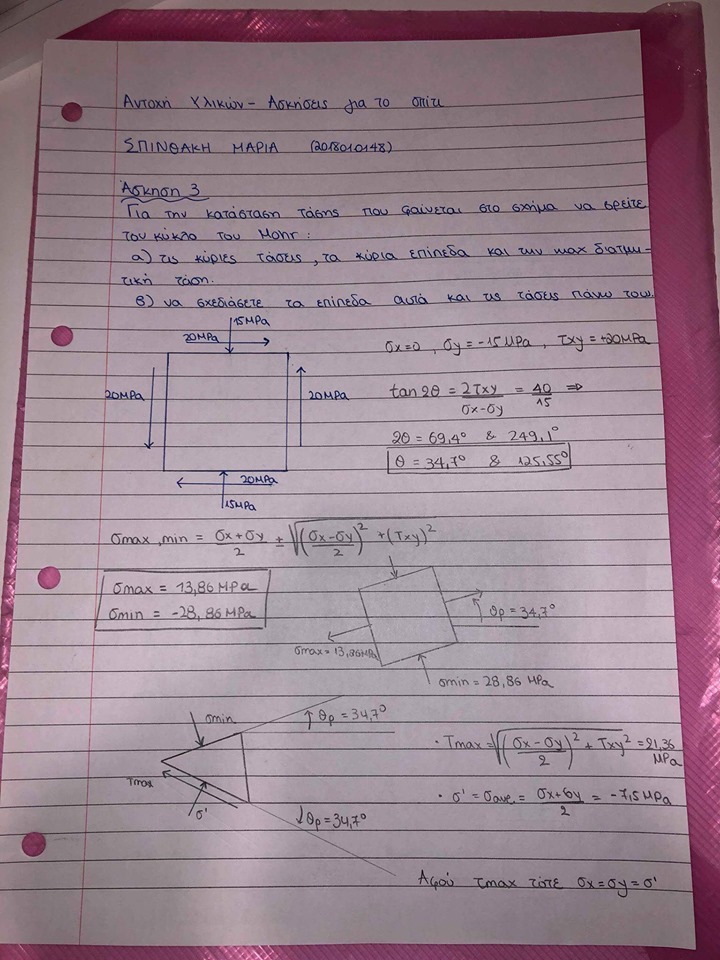 Αντοχή Υλικών - Ασκήσεις για το σπίτι
ΣΠΙΝΘΑΚΗ ΜΑΡΙΑ (2018010148)
Άσκηση 3
Για την κατάσταση τάσης που φαίνεται στο σχήμα να βρείτε
τον κύκλο του Mohr:
α) τις κύριες τάσεις, τα κύρια επίπεδα και την max διατμη-
τική τάση.
β) να σχεδιάσετε τα επίπεδα αυτά και τις τάσεις πάνω τους.
15MPa
20MPa
σx=0, σy=-15MPa, τxy=+20MPa
20MPa
20MPa
tan2θ = 2τxy/(σx-σy) = 40/15 ⇒
2θ = 69,4° & 249,1°
θ = 34,7° & 125,55°
20MPa
15MPa
σmax,min = (σx+σy)/2 ± √(((σx-σy)/2)² + (τxy)²)
σmax = 13,86MPa
σmin = -28,86MPa
θp = 34,7°
σmax=13,86MPa
σmin = 28,86 MPa
σmin
θp = 34,7°
· Tmax = √(((σx-σy)/2)² + τxy²) = 21,36 MPa
Tmax
σ'
· σ' = σave. = (σx+σy)/2 = -7,5MPa
θp=34,7°
Αφού τmax τότε σx=σy=σ'